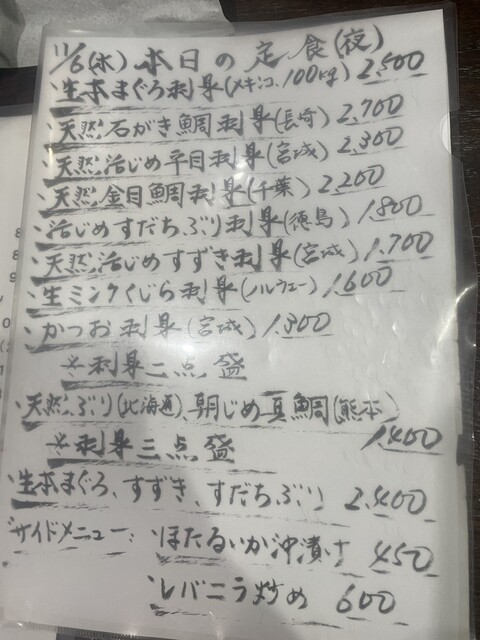 11/6(水) 本日の定食(夜)
・生本まぐろ刺身(メキシコ、100kg) 2,500
・天然石がき鯛刺身(長崎) 2,700
・天然活じめ平目刺身(宮城) 2,300
・天然金目鯛刺身(千葉) 2,200
・活じめすだちぶり刺身(徳島) 1,800
・天然活じめすずき刺身(宮城) 1,700
・生ミンクくじら刺身(ノルウェー) 1,600
・かつお刺身(宮城) 1,300
※刺身二点盛
・天然ぶり(北海道)、朝じめ真鯛(熊本)
1,400
※刺身三点盛
・生本まぐろ、すずき、すだちぶり 2,400
サイドメニュー: ・ほたるいか沖漬け 450
・レバニラ炒め 600